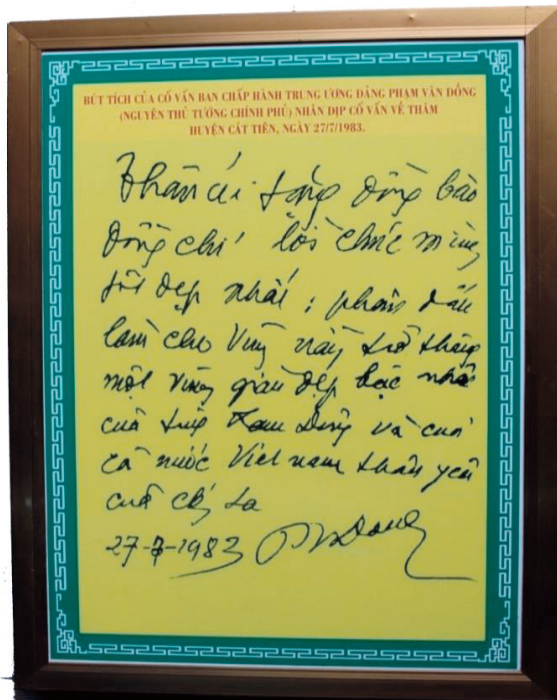 BÚT TÍCH CỦA CỐ VẤN BAN CHẤP HÀNH TRUNG ƯƠNG ĐẢNG PHẠM VĂN ĐỒNG
(NGUYÊN THỦ TƯỚNG CHÍNH PHỦ) NHÂN DỊP CỐ VẤN VỀ THĂM
HUYỆN CÁT TIÊN, NGÀY 27/7/1983.
Thân ái tặng đồng bào
đồng chí lời chúc mừng
tốt đẹp nhất ; phấn đấu
làm cho vùng này trở thành
một vùng giàu đẹp bậc nhất
của tỉnh Lâm Đồng và của
cả nước Việt nam thân yêu
của chúng ta
27-7-1983 PVDong